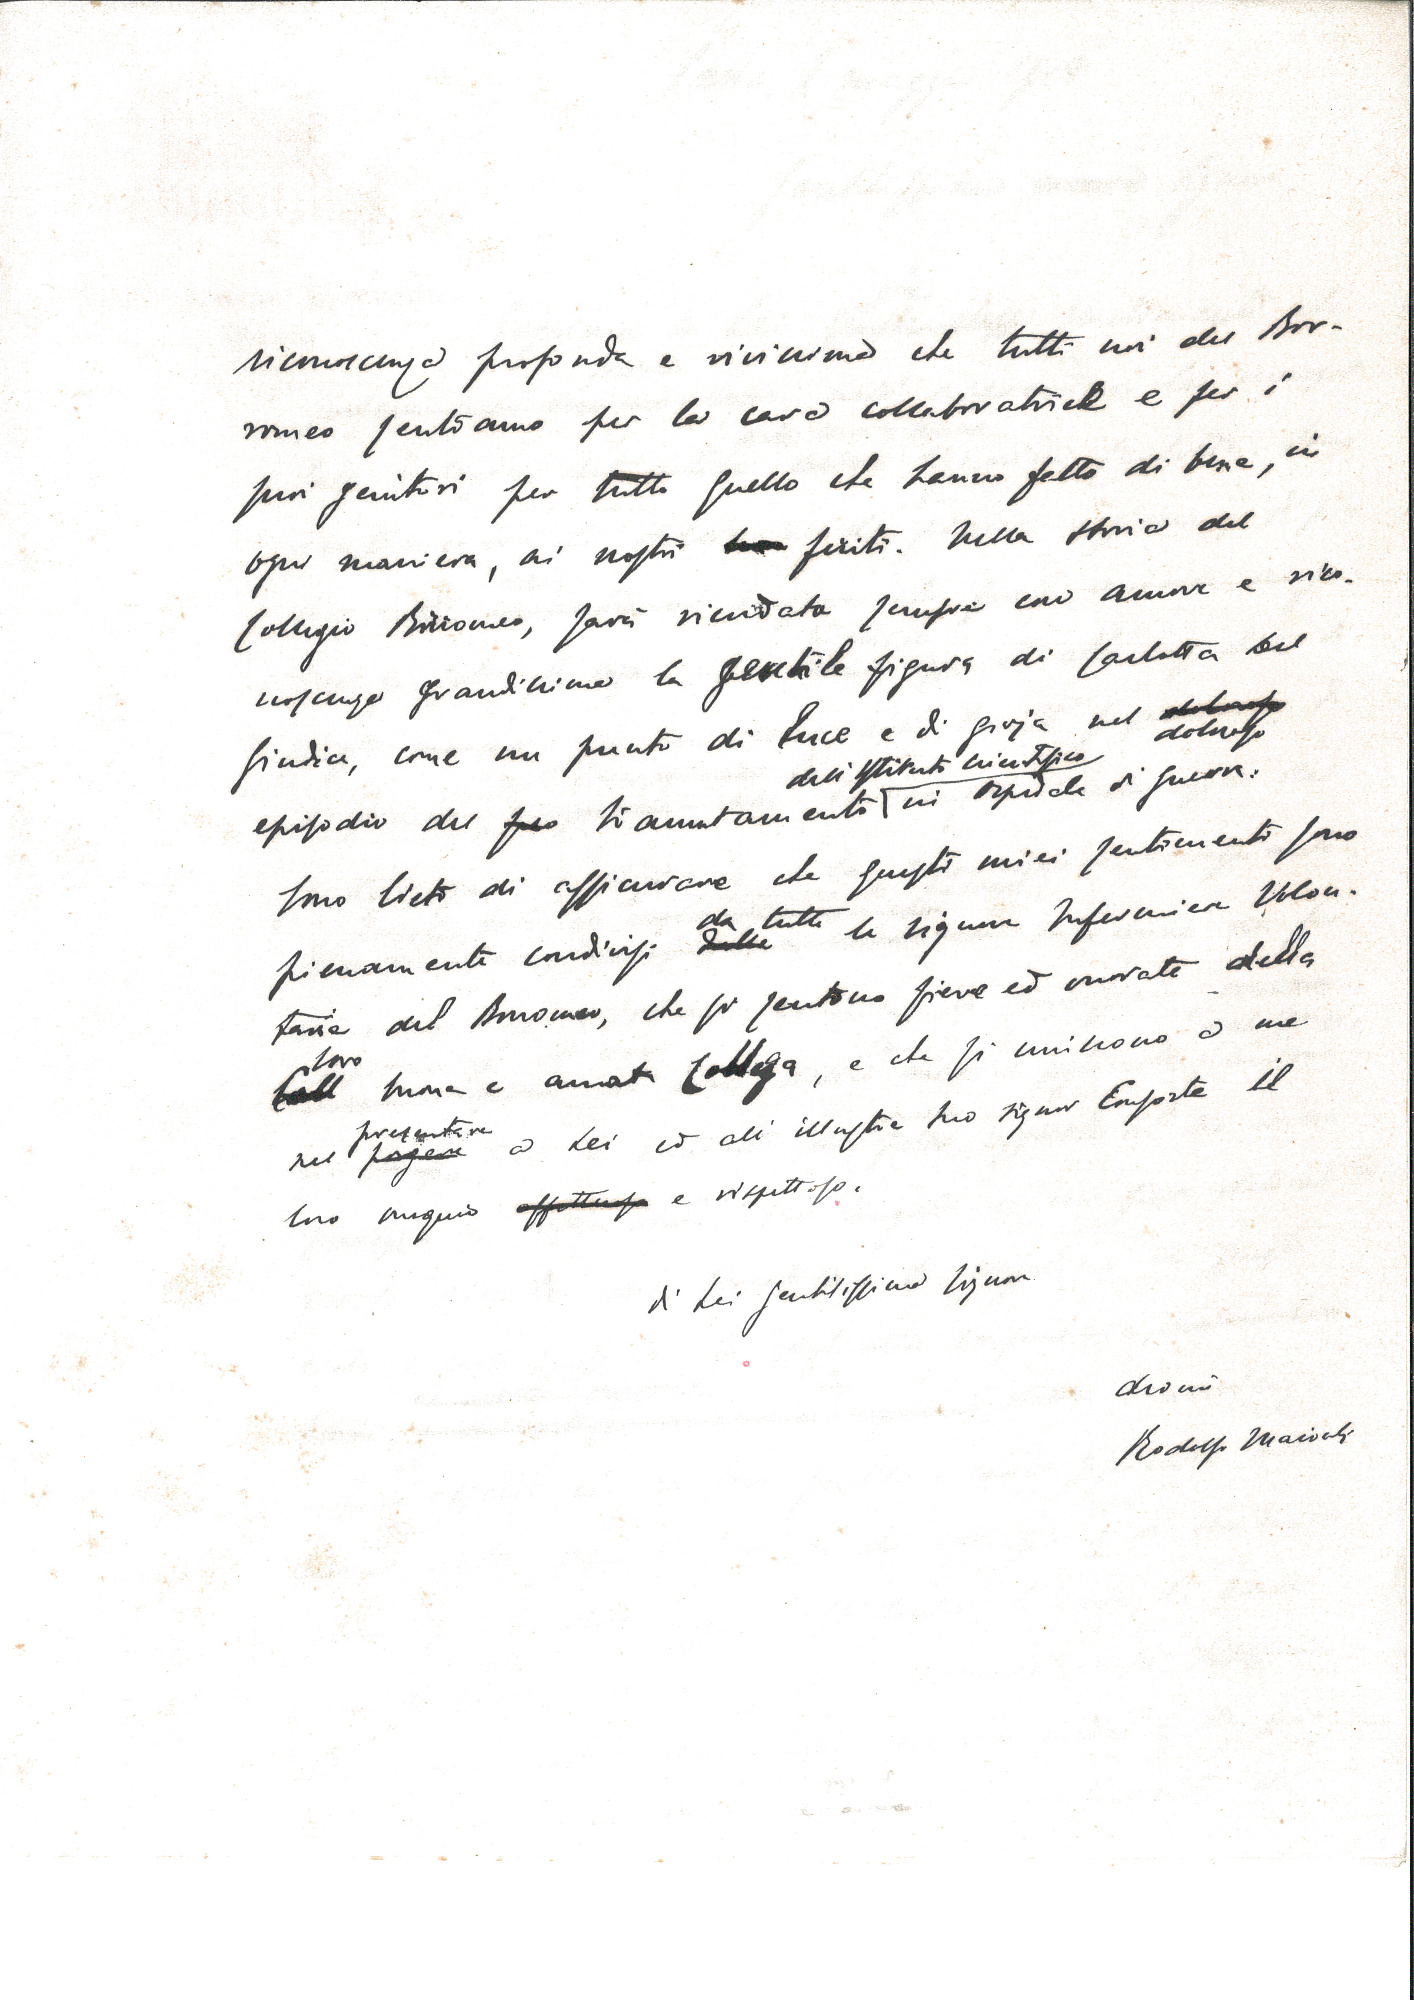 riconoscenza profonda e vivissima che tutti noi del Bor-
romeo sentiamo per la cara collaboratrice e per i
suoi genitori per tutto quello che hanno fatto di bene, in
ogni maniera, ai nostri feriti. Nella storia del
Collegio Borromeo, sarà ricordata sempre con amore e rico-
noscenza grandissima la gentile figura di Carlotta Del
Giudice, come un punto di luce e di gioja nel doloroso
doloroso
dell'Istituto scientifico
episodio del suo tramutamento in ospedale di guerra.
Sono lieto di assicurare che questi miei sentimenti sono
da tutte
pienamente condivisi dalle le signore Infermiere Volon-
tarie del Borromeo, che si sentono fiere ed onorate della
loro
Coll buona e amata Collega, e che si uniscono a me
presentare
nel porgere a Lei ed all'illustre suo signor Consorte il
loro ossequio affettuoso e rispettoso.
di Lei gentilissima Signora
dev.mo
Rodolfo Maiocchi